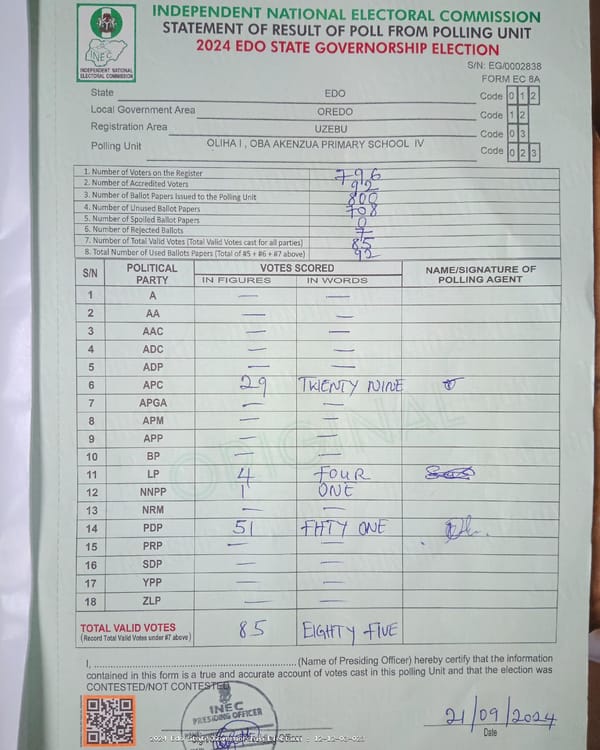 INDEPENDENT NATIONAL ELECTORAL COMMISSION
STATEMENT OF RESULT OF POLL FROM POLLING UNIT
2024 EDO STATE GOVERNORSHIP ELECTION
INEC
INDEPENDENT NATIONAL
ELECTORAL COMMISSION
S/N: EG/0002838
FORM EC 8A
State EDO Code 0 1 2
Local Government Area OREDO Code 1 2
Registration Area UZEBU Code 0 3
Polling Unit OLIHA I , OBA AKENZUA PRIMARY SCHOOL IV Code 0 2 3
1. Number of Voters on the Register 796
2. Number of Accredited Voters 92
3. Number of Ballot Papers Issued to the Polling Unit 800
4. Number of Unused Ballot Papers 708
5. Number of Spoiled Ballot Papers 0
6. Number of Rejected Ballots 7
7. Number of Total Valid Votes (Total Valid Votes cast for all parties) 85
8. Total Number of Used Ballots Papers (Total of #5 + #6 + #7 above) 92
S/N POLITICAL PARTY VOTES SCORED NAME/SIGNATURE OF POLLING AGENT
IN FIGURES IN WORDS
1 A — —
2 AA — —
3 AAC — —
4 ADC — —
5 ADP — —
6 APC 29 TWENTY NINE
7 APGA — —
8 APM — —
9 APP — —
10 BP — —
11 LP 4 FOUR
12 NNPP 1 ONE
13 NRM — —
14 PDP 51 FIFTY ONE
15 PRP — —
16 SDP — —
17 YPP — —
18 ZLP — —
ORIGINAL
TOTAL VALID VOTES 85 EIGHTY FIVE
(Record Total Valid Votes under #7 above)
I, ........ (Name of Presiding Officer) hereby certify that the information
contained in this form is a true and accurate account of votes cast in this polling Unit and that the election was
CONTESTED/NOT CONTESTED
INEC
PRESIDING OFFICER
21/09/2024
Date